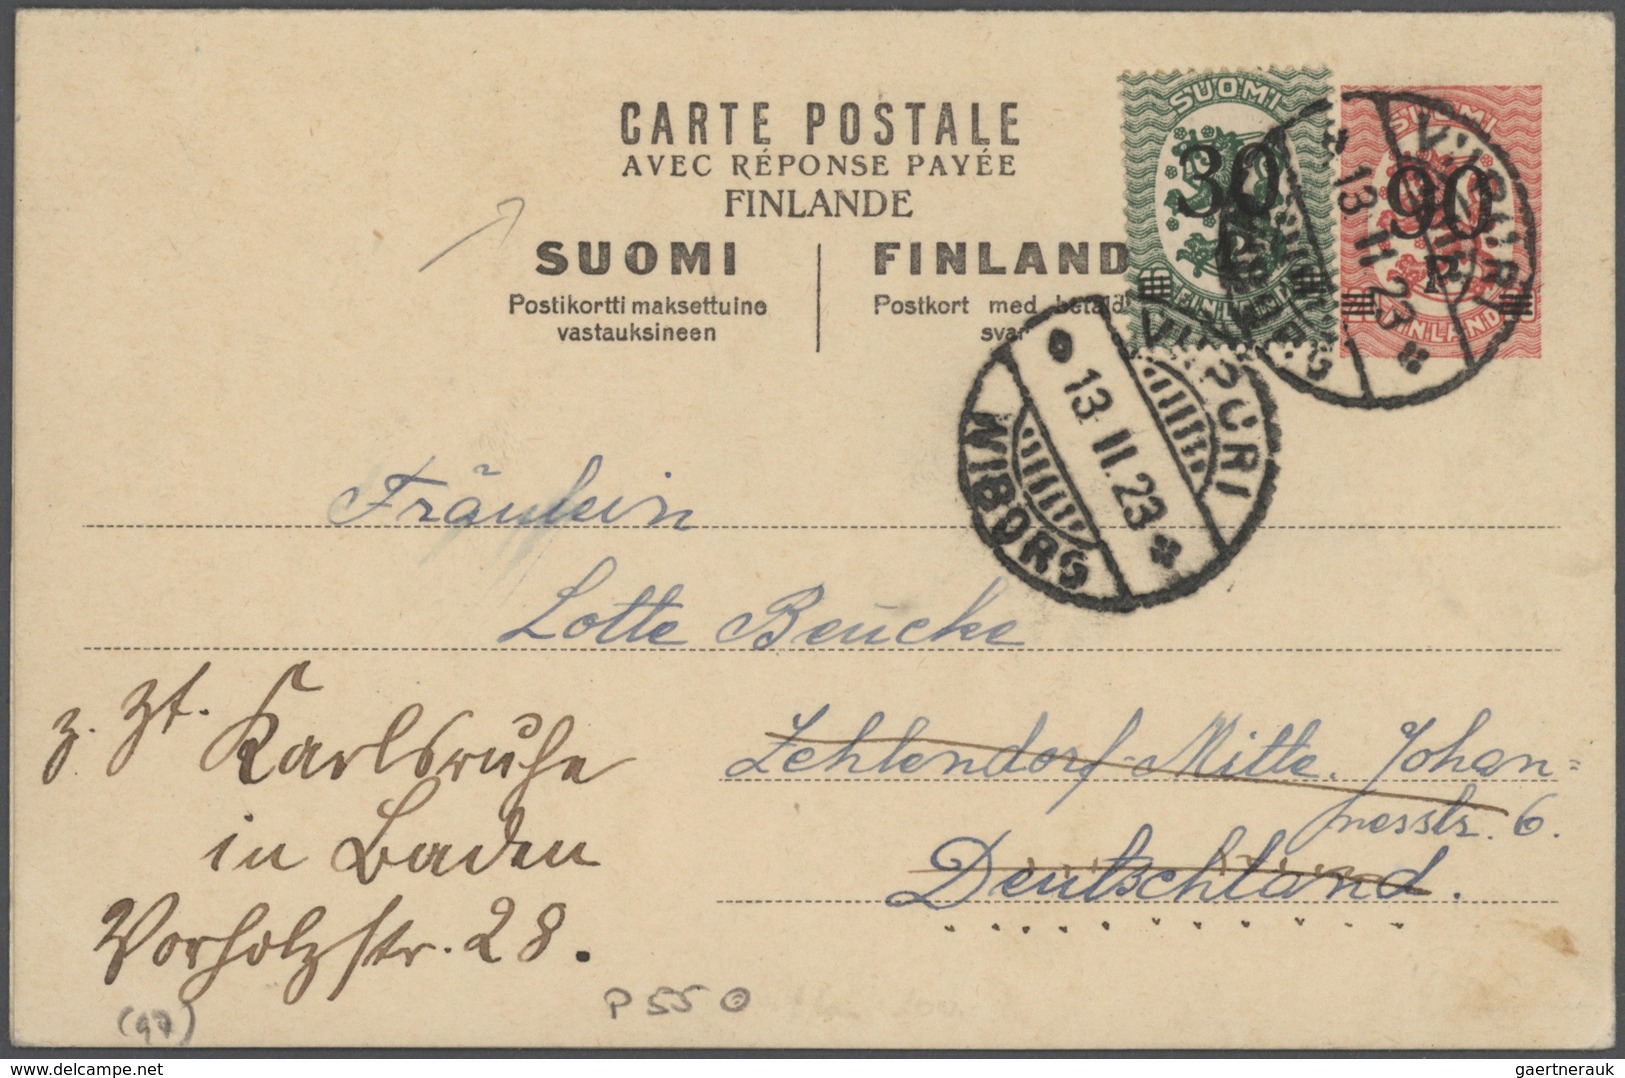 CARTE POSTALE
AVEC RÉPONSE PAYÉE
FINLANDE
SUOMI
Postikortti maksettuine
vastauksineen
FINLAND
Postkort med betald
svar
SUOMI
30
P
FINLAND
SUOMI
90
P
FINLAND
VIIPURI
13 II. 23
WIBORG
VIIPURI
13 II. 23
WIBORG
Fräulein
Lotte Beucke
Zehlendorf-Mitte. Johan=
nesstr. 6.
Deutschland.
z. Zt. Karlsruhe
in Baden
Vorholzstr. 28.
(97)
P 55
delcampe.net
gaertnerauk